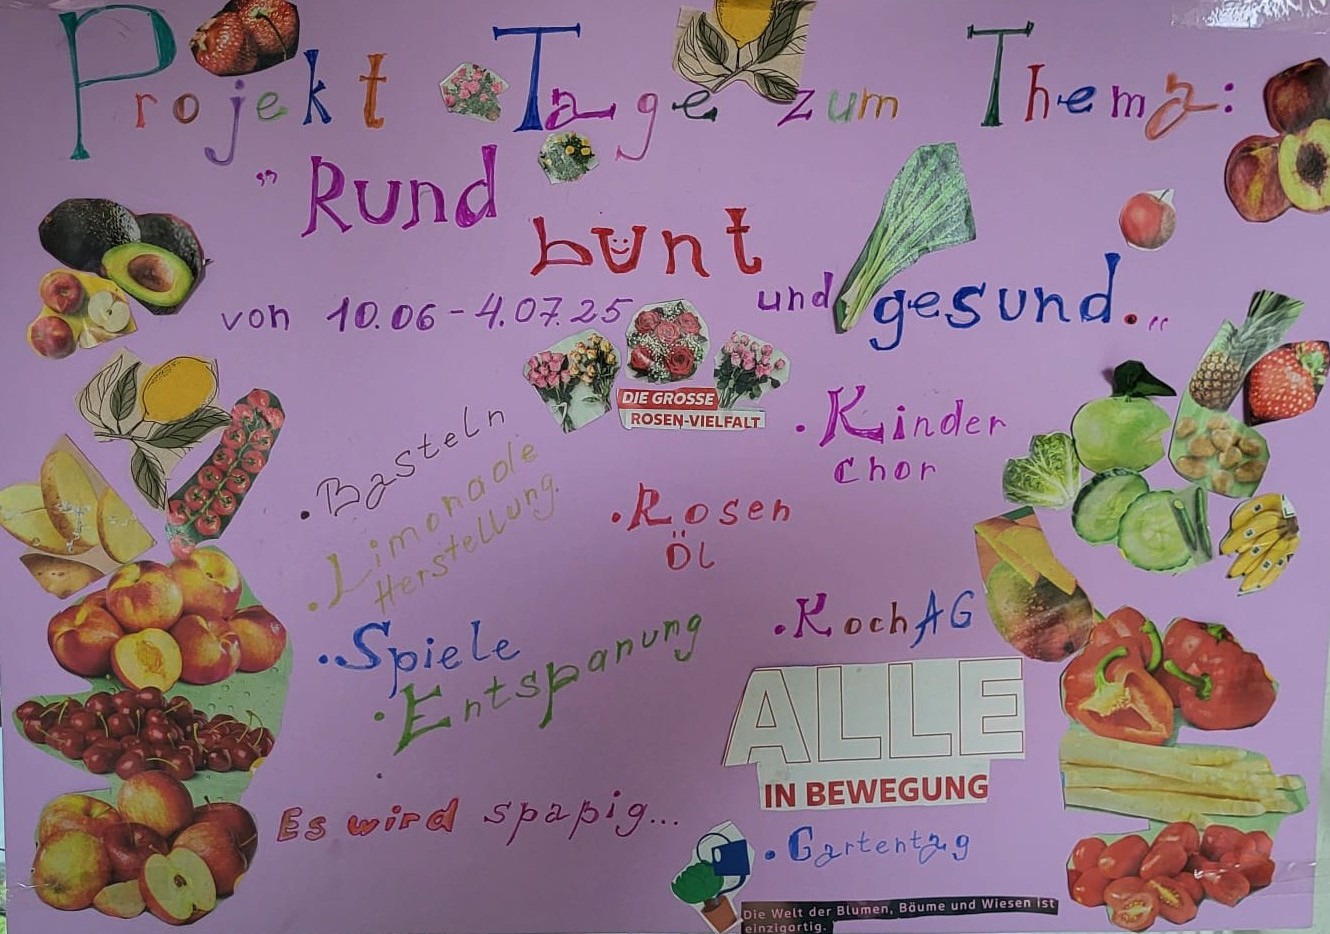 Projekt Tage zum Thema:
"Rund
bunt
und gesund."
von 10.06-4.07.25
DIE GROSSE
ROSEN-VIELFALT
• Basteln
• Limonade
Herstellung.
• Spiele
• Entspanung
• Rosen
Öl
• Kinder
Chor
• Koch AG
ALLE
IN BEWEGUNG
• Gartentag
Es wird spaßig...
Die Welt der Blumen, Bäume und Wiesen ist
einzigartig.